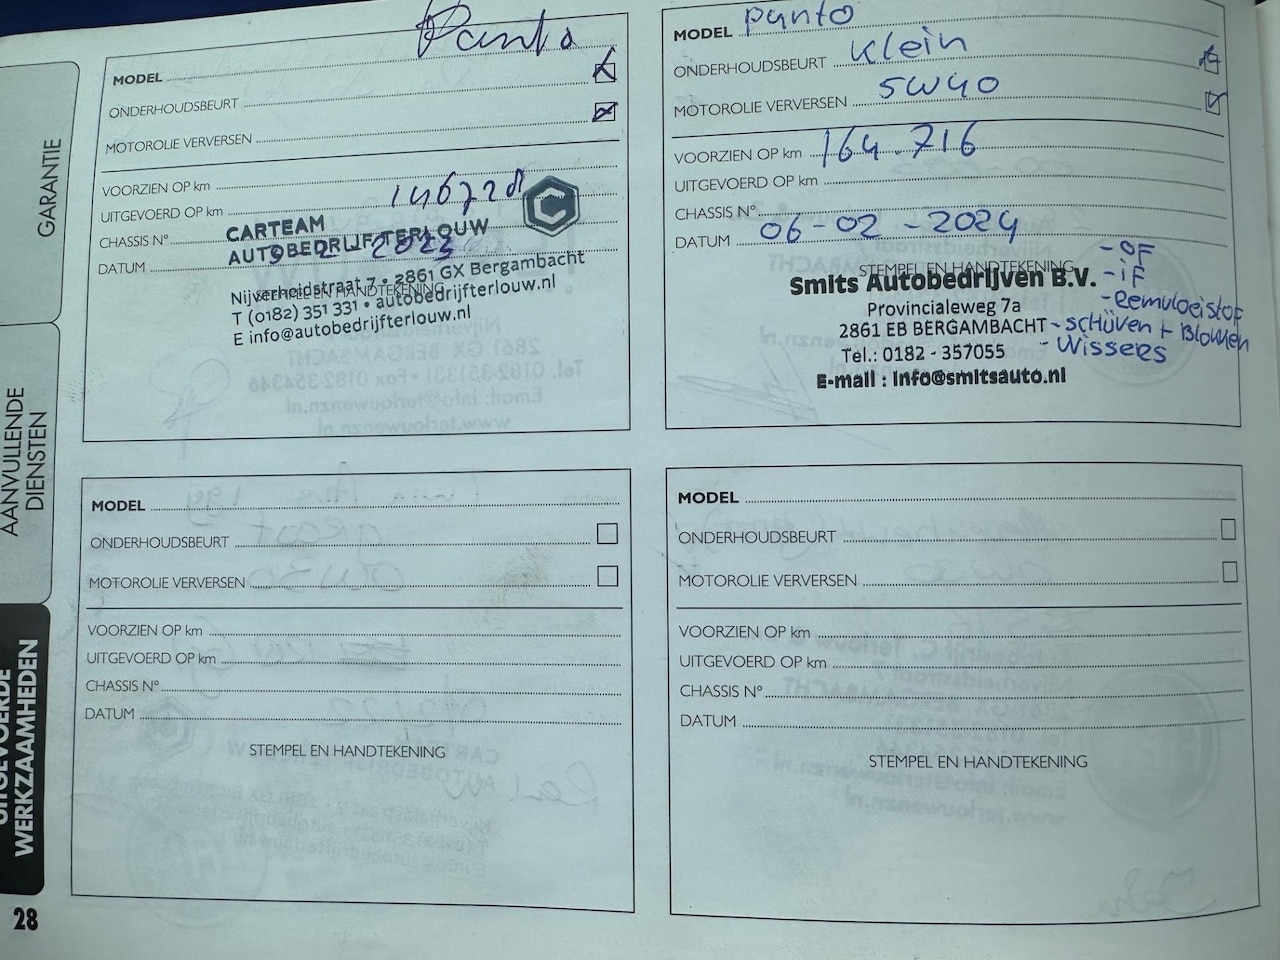 GARANTIE
AANVULLENDE
DIENSTEN
UITGEVOERDE
WERKZAAMHEDEN
28
MODEL Panda
ONDERHOUDSBEURT
MOTOROLIE VERVERSEN
VOORZIEN OP km
UITGEVOERD OP km 146728
CHASSIS N°
DATUM 9-2-2023
STEMPEL EN HANDTEKENING
CARTEAM
AUTOBEDRIJF TERLOUW
Nijverheidstraat 7 • 2861 GX Bergambacht
T (0182) 351 331 • autobedrijfterlouw.nl
E info@autobedrijfterlouw.nl
MODEL panto
ONDERHOUDSBEURT Klein
MOTOROLIE VERVERSEN 5W40
VOORZIEN OP km 164.716
UITGEVOERD OP km
CHASSIS N°
DATUM 06-02-2024
STEMPEL EN HANDTEKENING
Smits Autobedrijven B.V.
Provincialeweg 7a
2861 EB BERGAMBACHT
Tel.: 0182 - 357055
E-mail : Info@smitsauto.nl
- OF
- iF
- Remvloeistof
- schijven + Blokken
- Wissers
MODEL
ONDERHOUDSBEURT
MOTOROLIE VERVERSEN
VOORZIEN OP km
UITGEVOERD OP km
CHASSIS N°
DATUM
STEMPEL EN HANDTEKENING
MODEL
ONDERHOUDSBEURT
MOTOROLIE VERVERSEN
VOORZIEN OP km
UITGEVOERD OP km
CHASSIS N°
DATUM
STEMPEL EN HANDTEKENING